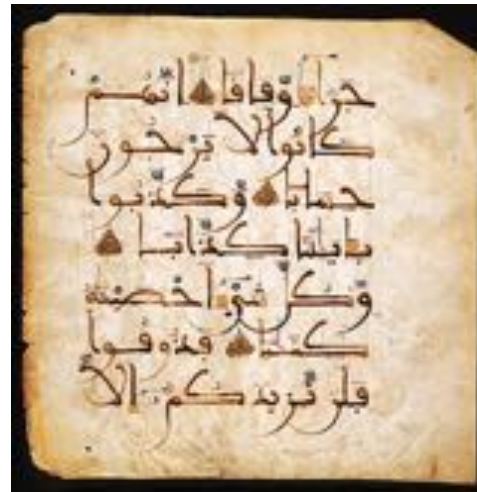 جزآء وّفاقا انّهم
كانوا لا يرجون
حسابا وّكذّبوا
بايتنا كذّابا
وّكلّ شيء احصينه
كتبا فذوقوا
فلن نزيدكم الّا